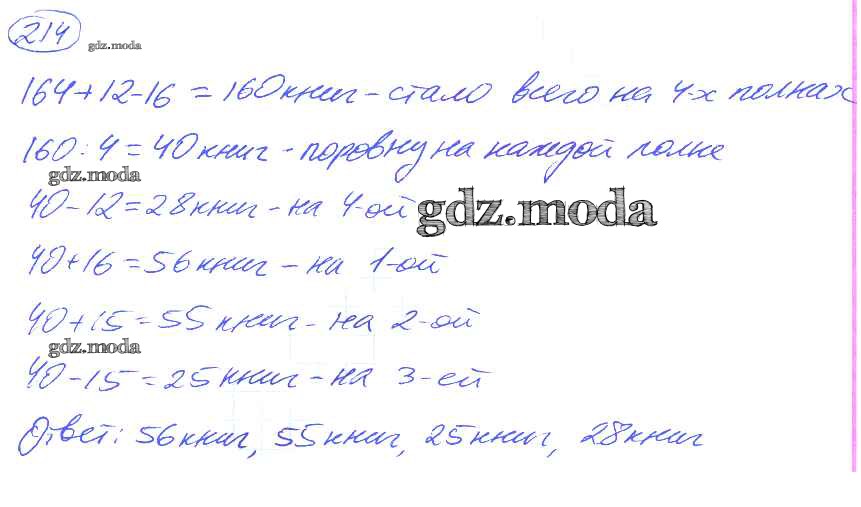 214 gdz.moda
164+12-16 = 160 книг - стало всего на 4-х полках
160 : 4 = 40 книг - поровну на каждой полке
gdz.moda
40-12=28 книг - на 4-ой gdz.moda
40+16=56 книг - на 1-ой
40+15=55 книг - на 2-ой
gdz.moda
40-15=25 книг - на 3-ей
Ответ: 56 книг, 55 книг, 25 книг, 28 книг